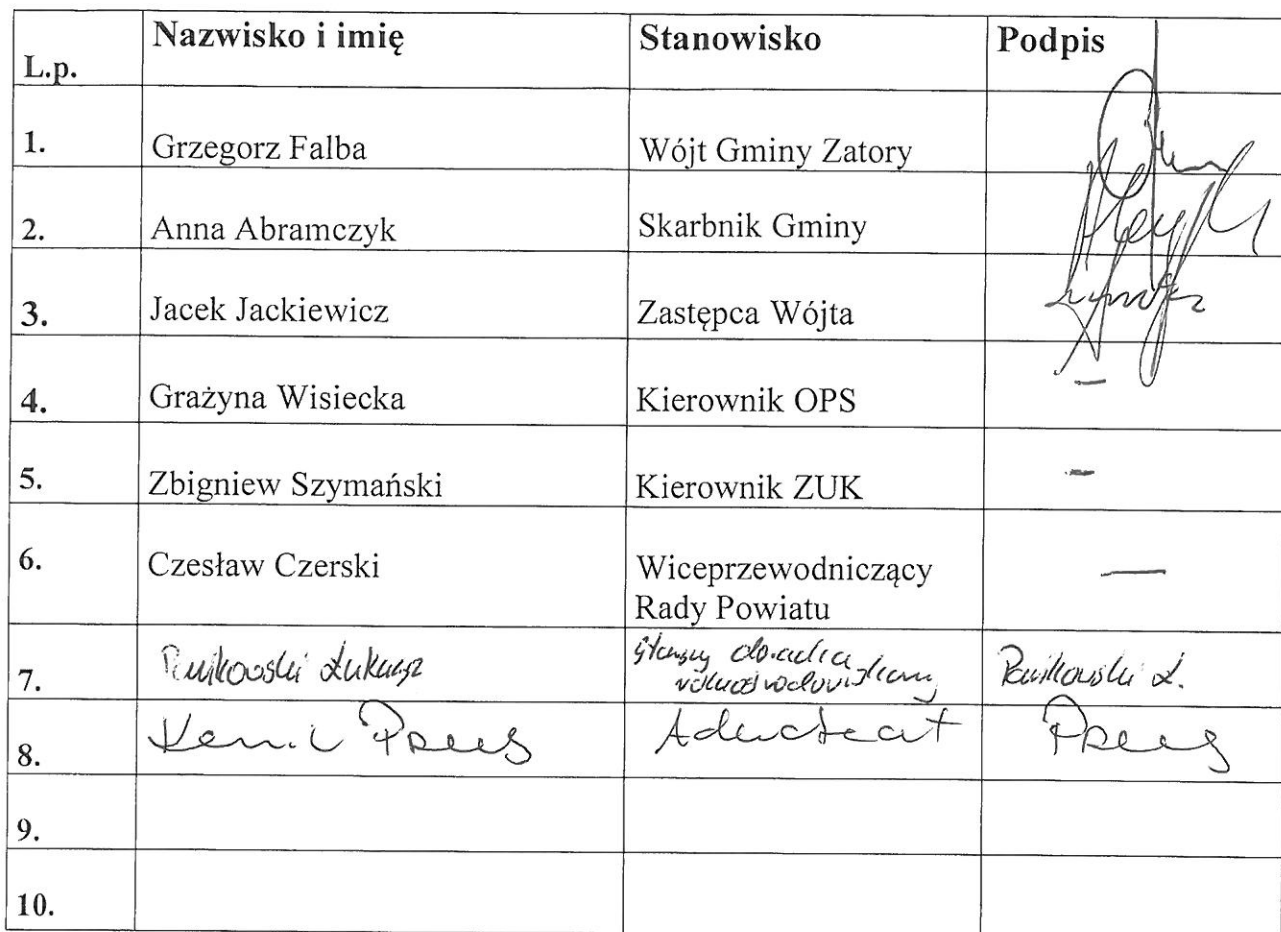 L.p. Nazwisko i imię Stanowisko Podpis
1. Grzegorz Falba Wójt Gminy Zatory
2. Anna Abramczyk Skarbnik Gminy
3. Jacek Jackiewicz Zastępca Wójta
4. Grażyna Wisiecka Kierownik OPS –
5. Zbigniew Szymański Kierownik ZUK -
6. Czesław Czerski Wiceprzewodniczący —
Rady Powiatu
7. Łukasz
8. Kamil Adwokat
9.
10.